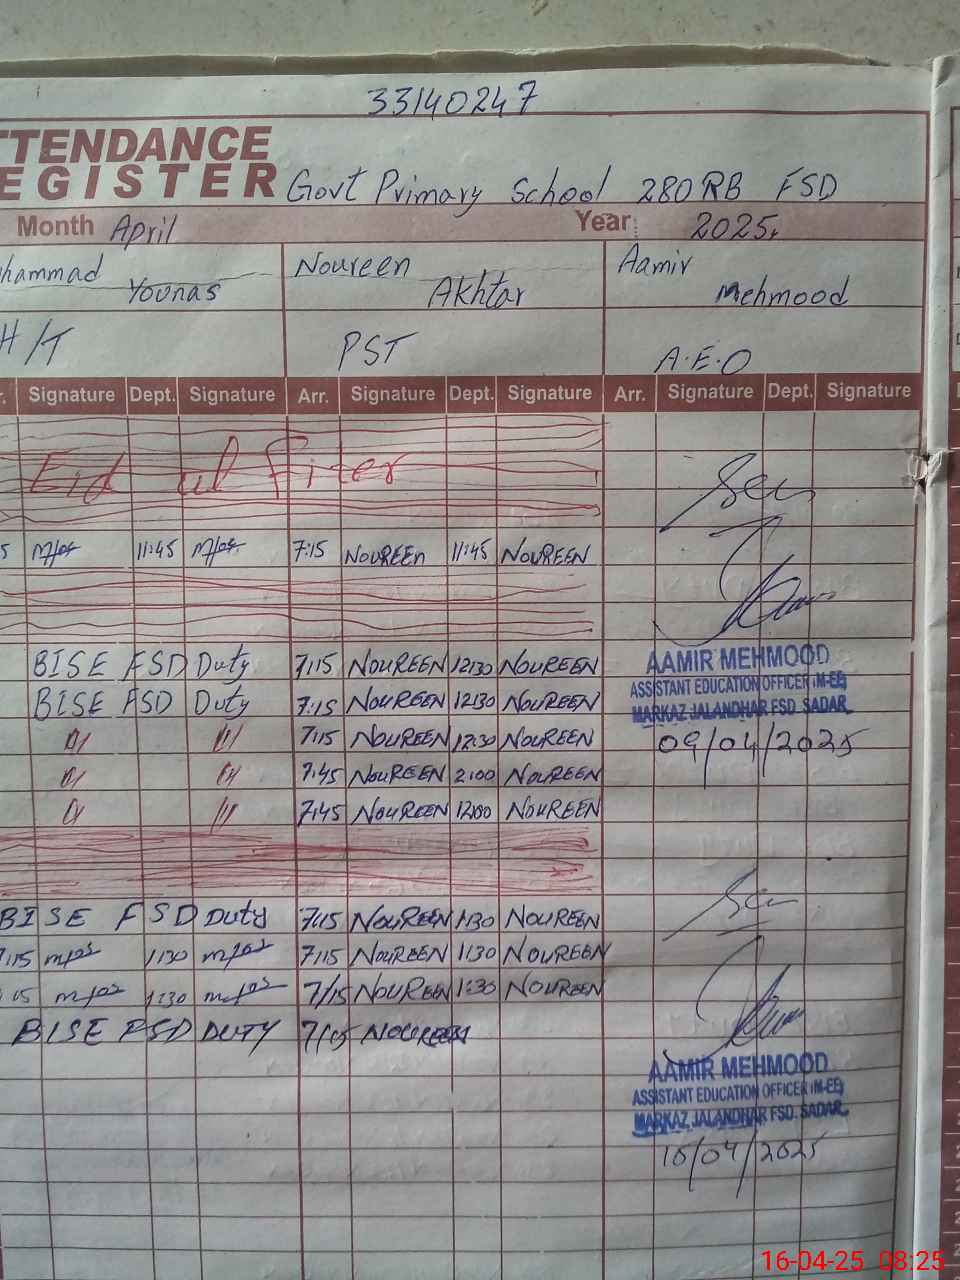 33140247
TTENDANCE
EGISTER Govt Primary School 280 RB FSD
Month April Year 2025.
hammad Younas Noureen Akhtar Aamir Mehmood
H/T PST A.E.O
r. Signature Dept. Signature Arr. Signature Dept. Signature Arr. Signature Dept. Signature
Eid ul fiter
5 11:45 7:15 NOUREEN 11:45 NOUREEN
BISE FSD Duty 7:15 NOUREEN 12:30 NOUREEN
BISE FSD Duty 7:15 NOUREEN 12:30 NOUREEN
7:15 NOUREEN 12:30 NOUREEN
7:45 NOUREEN 2:00 NOUREEN
7:45 NOUREEN 12:00 NOUREEN
AAMIR MEHMOOD
ASSISTANT EDUCATION OFFICER (M-EE)
MARKAZ JALANDHAR FSD. SADAR.
09/04/2025
BISE FSD Duty 7:15 NOUREEN 1:30 NOUREEN
7:15 1:30 7:15 NOUREEN 1:30 NOUREEN
1:30 7/15 NOUREEN 1:30 NOUREEN
BISE FSD DUTY 7/15 NOUREEN
AAMIR MEHMOOD
ASSISTANT EDUCATION OFFICER (M-EE)
MARKAZ JALANDHAR FSD. SADAR.
16/04/2025
16-04-25 08:25